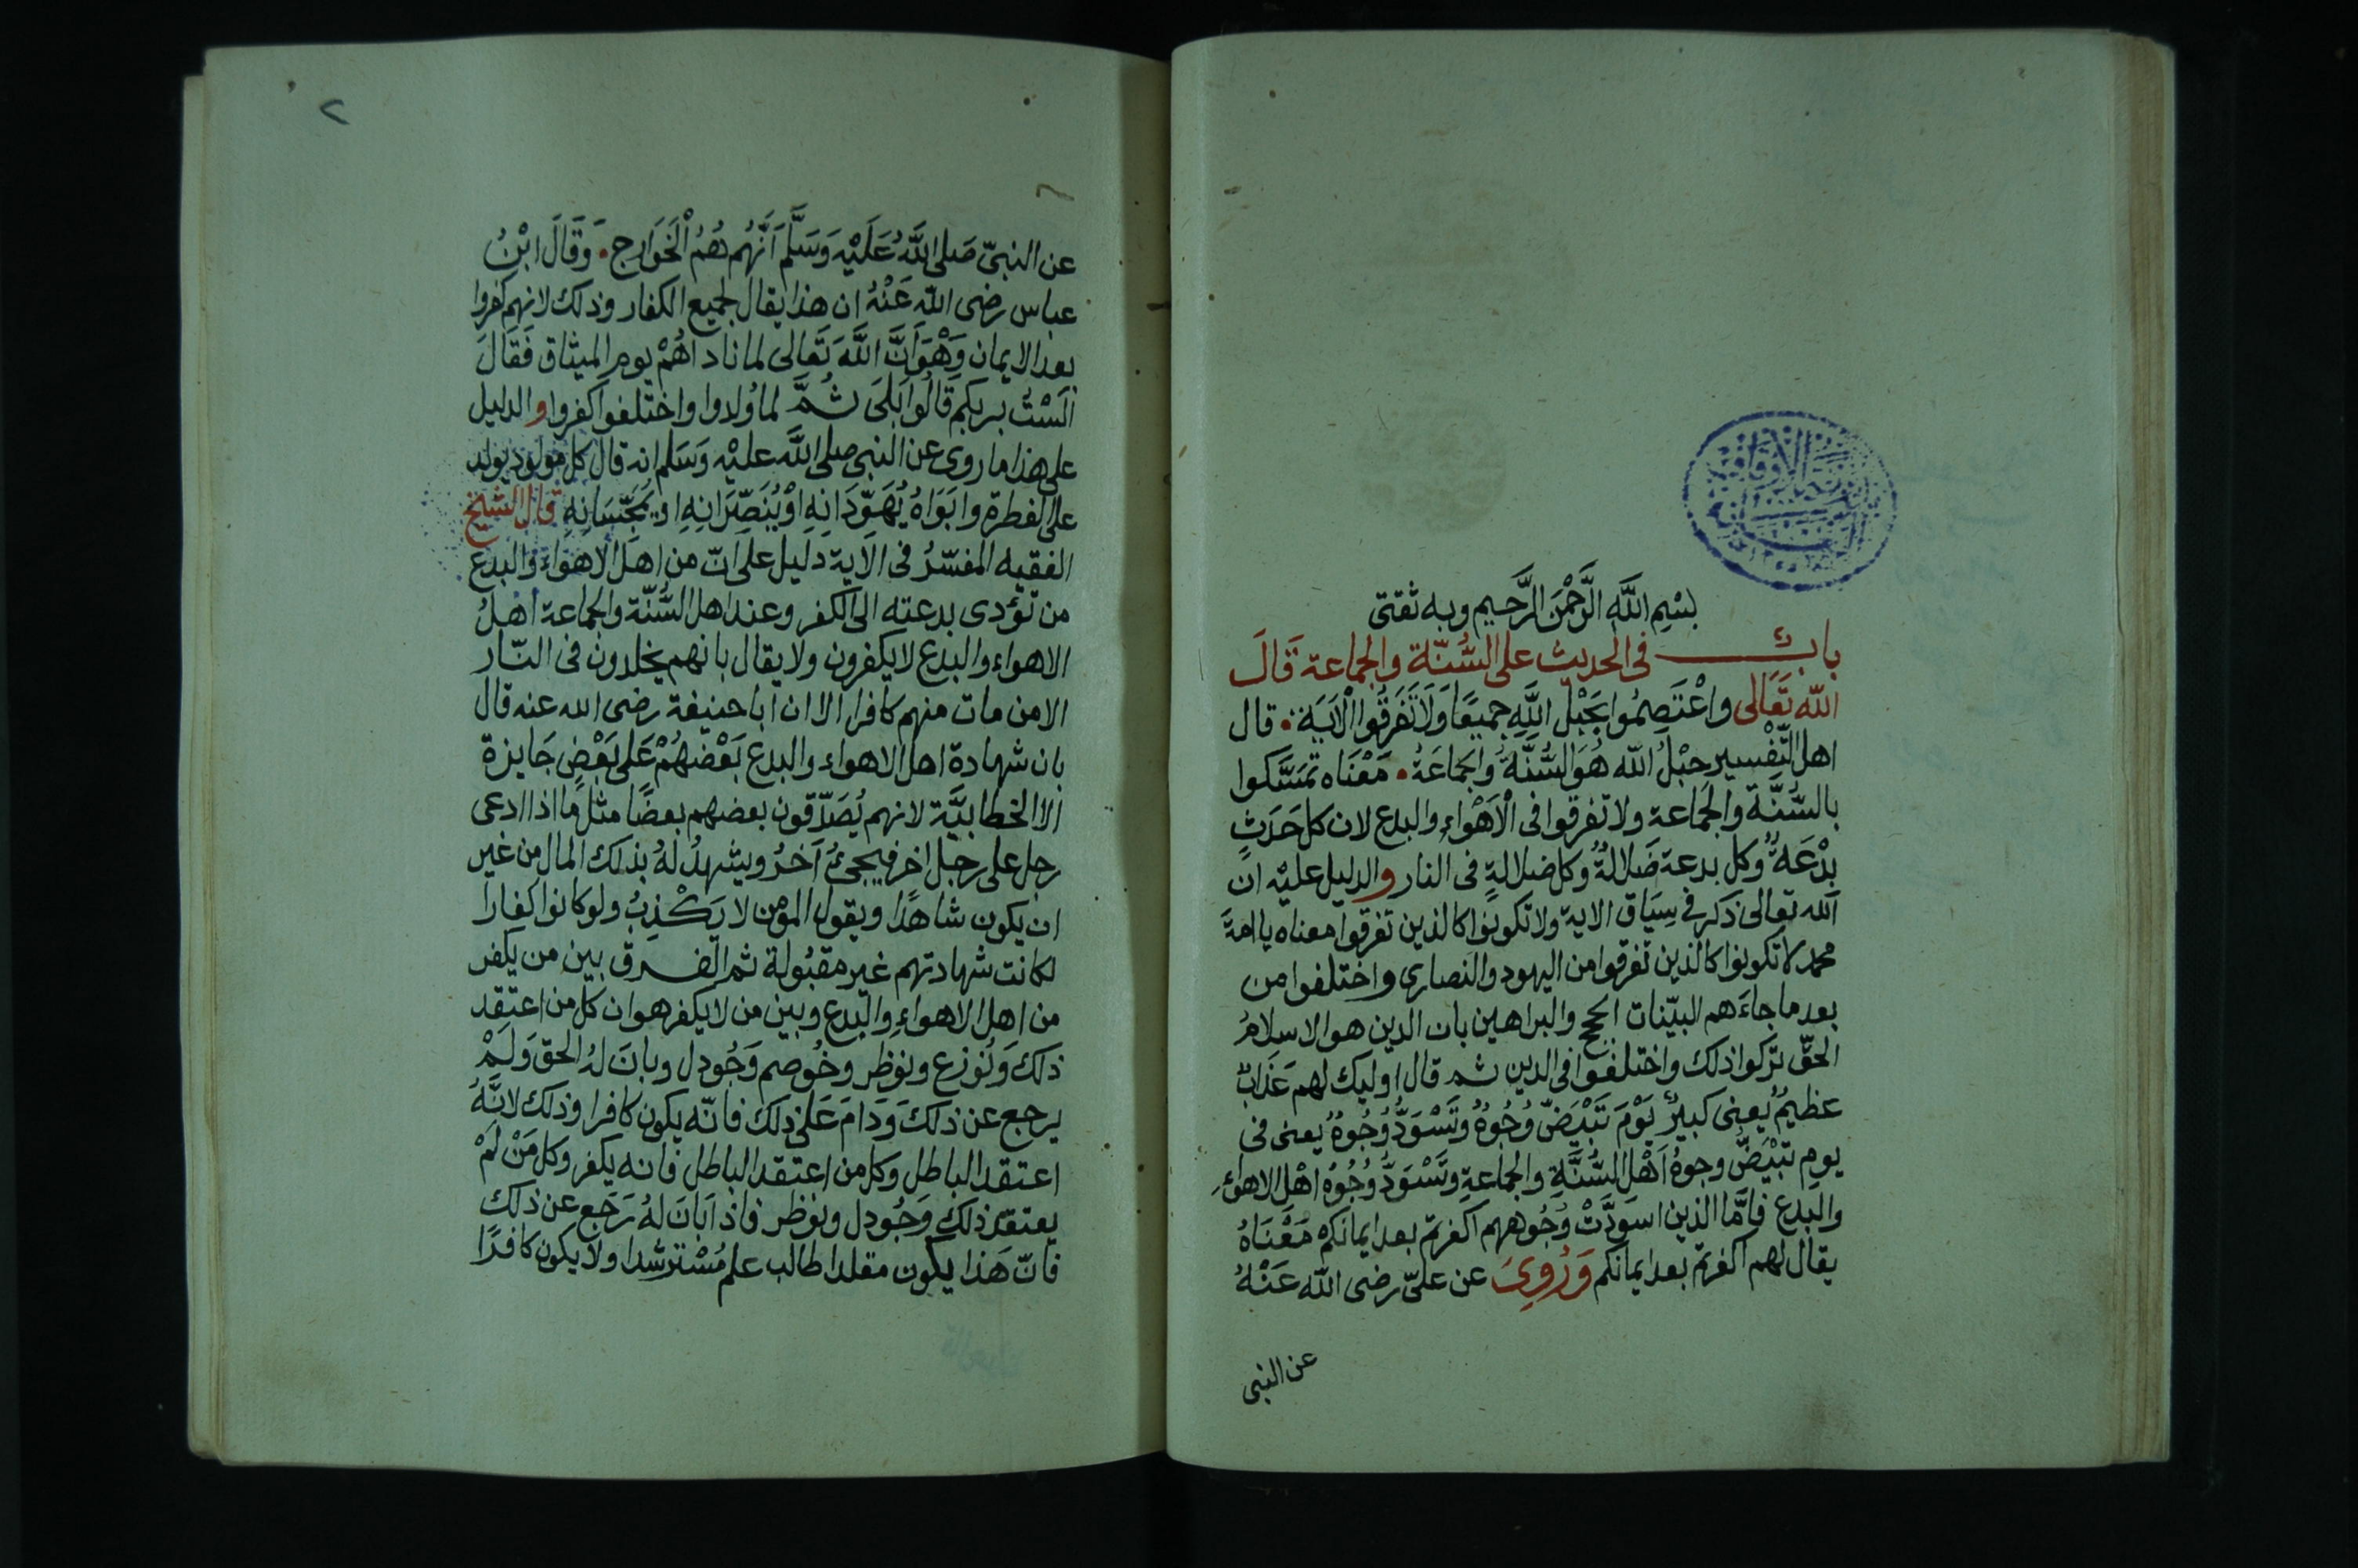 بِسْمِ اللَّهِ الرَّحْمَنِ الرَّحِيمِ وبه ثقتى
بابٌ فى الحديث على السُّنّة والجماعة قَالَ
الله تَعَالى واعْتَصِمُوا بِحَبْلِ اللَّهِ جميعًا وَلَا تَفَرَّقُوا الْآيَة . قال
اهل التّفْسير حبْلُ الله هُوَ السُّنَّةُ والجَمَاعَةُ . مَعْنَاه تمسَّكوا
بالسُّنَّة والجَمَاعة ولا تفرقوا فى الْاَهْوَاءِ والبدع لان كل حَدَثٍ
بِدْعَةٌ وكل بدعة ضَلالةٌ وكل ضلالةٍ فى النار والدليل عليْه انّ
الله تعالى ذكر فى سِيَاق الاية ولا تكونوا كالذين تفرقوا معناه يا امةَ
محمد لا تكونوا كالذين تفرقوا من اليهود والنصارى واختلفوا من
بعد ما جاءَهم البيّنات الحجج والبراهين بان الدين هو الاسلامُ
الحقّ تركوا ذلك واختلفوا فى الدين ثم قال اوليك لهم عَذَابٌ
عظيمٌ يعنى كبيرٌ يَوْمَ تَبْيَضّ وُجُوهٌ وتَسْوَدُّ وُجُوهٌ يعنى فى
يوم تبْيَضّ وجوهُ اَهْل السُّنَّةِ والجماعةِ وتَسْوَدُّ وُجُوهُ اهْلِ الاهواءِ
والبدع فامَّا الذين اسوَدَّتْ وُجُوههم اكفرتم بعد ايمانكمْ مَعْنَاهُ
يقال لهم اكفرتم بعد ايمانكم وَرُوِىَ عن علىّ رضى الله عَنْهُ
عن النبى
٢
عن النبىّ صَلى اللَّهُ عَلَيْهِ وَسَلَّم اَنَّهُم هُمُ الْخَوَارِج . وَقَالَ ابْنُ
عباس رضى الله عَنْهُ ان هذا يقال لجميع الكفار وذلك لانهم كفروا
بعد الايمان وَهْوَ اَنَّ اللَّهَ تَعَالى لما ناداهُمْ يوم الميثاق فَقَالَ
اَلَسْتُ بربكم قَالُوا بَلَى ثُمَّ لما وُلدوا واختلفوا كفروا والدليل
على هذا ما روى عن النبى صلى اللَّه عليْهِ وَسَلم انه قال كل مولود يولد
على الفطرة وابَوَاهُ يُهَوِّدَانِهِ اوْ يُنَصِّرَانِهِ او يُمَجِّسَانِهِ قال الشيخ
الفقيه المفسّرُ فى الاَية دَليل على انّ من اهل الاهواءِ والبدع
من تؤدى بدعته الى الكفر وعند اهل السُّنّة والجماعة اهلُ
الاهواء والبدع لا يكفرون ولا يقال بانهم يخلدون فى النّار
الا من مات منهم كافرا الا ان ابا حنيفة رضى الله عنه قال
بان شهادة اهل الاهواء والبدع بَعْضهُمْ عَلى بَعْضٍ جَايزة
الا الخطابيَّة لانهم يُصَدّقون بعضهم بعضًا مثل ما اذا ادعى
رجل على رجل اخر فيجئُ آخَرُ ويشهدُ لهُ بذلك المال من غير
ان يكون شاهدًا ويقول المؤمن لا يَكْذِبُ ولو كانوا كفارا
لكانت شهادتهم غير مقبُولة ثم الفرق بين من يكفر
من اهل الاهواءِ والبدع وبين من لا يكفر هو ان كل من اعتقد
ذلك وَنُوزع ونوظر وخُوصم وَجُودل وبانَ لهُ الحق وَلَمْ
يرجع عن ذلك وَدَامَ عَلى ذلك فانّه يكون كافرا وذلك لانَّهُ
اعتقد الباطل وكل من اعتقد الباطل فانه يكفر وكل مَنْ لمْ
يعتقد ذلك وَجُودل ونوظر فاذا بَانَ لهُ رَجَع عن ذلك
فانّ هَذا يكون مقلدا طالب علم مُسْترشدا ولا يكون كافرًا